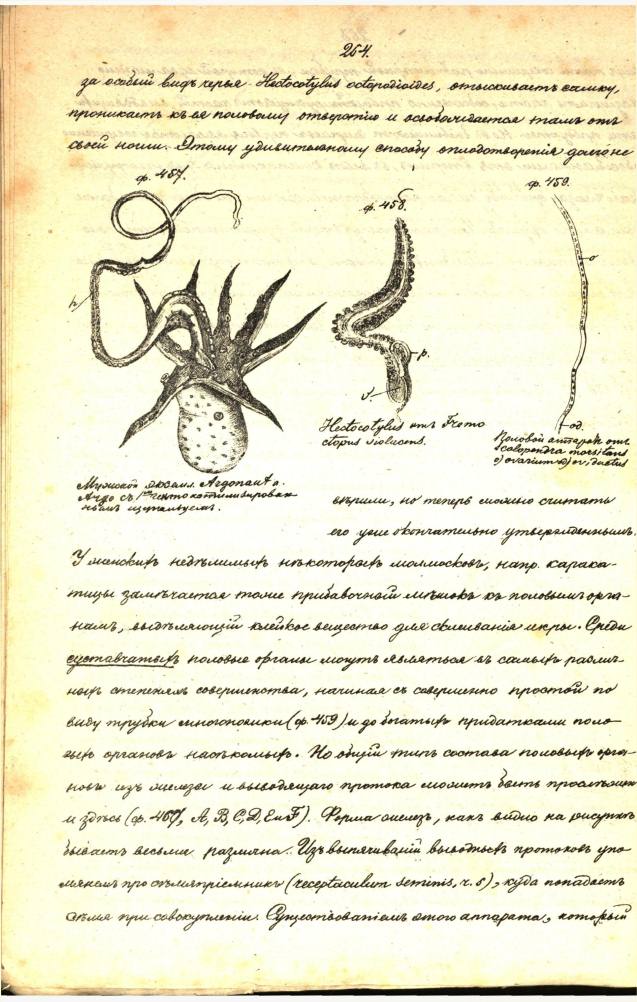 264.
за особый видъ червя Hectocotylus octopodioides, отыскиваетъ самку,
проникаетъ къ ея половому отверстію и освобождается тамъ отъ
своей ноши. Этому удивительному способу оплодотворенія долго не
ф. 457.
ф. 458.
ф. 459.
h
p.
d.
o
od.
Hectocotylus отъ Tremo
ctopus violaceus.
Половой аппаратъ отъ
Scolopendra morsitans
o) ovarium od) oviductus
Мужской экземп. Argonauta
Argo съ гектокотилизирован
нымъ щупальцемъ.
вѣрили, но теперь можно считать
его уже окончательно утвержденнымъ.
У женскихъ недѣлимыхъ нѣкоторыхъ моллюсковъ, напр. карака-
тицы замѣчается тоже прибавочный мѣшокъ къ половымъ орга-
намъ, выдѣляющій клейкое вещество для склеиванія икры. Среди
суставчатыхъ половые органы могутъ являться въ самыхъ различ-
ныхъ степеняхъ совершенства, начиная съ совершенно простой по
виду трубки многоножки (ф. 459) и до богатыхъ придатками поло-
выхъ органовъ насѣкомыхъ. Но общій типъ состава половыхъ орга-
новъ изъ железы и выводящаго протока можетъ быть прослѣженъ
и здѣсь (ф. 467, A, B, C, D, E и F). Форма железъ, какъ видно на рисункѣ
бываетъ весьма различна. Изъ выпячиваній выводныхъ протоковъ упо-
мянемъ про сѣмяпріемникъ (receptaculum seminis, r. s), куда попадаетъ
сѣмя при совокупленіи. Существованіемъ этого аппарата, который